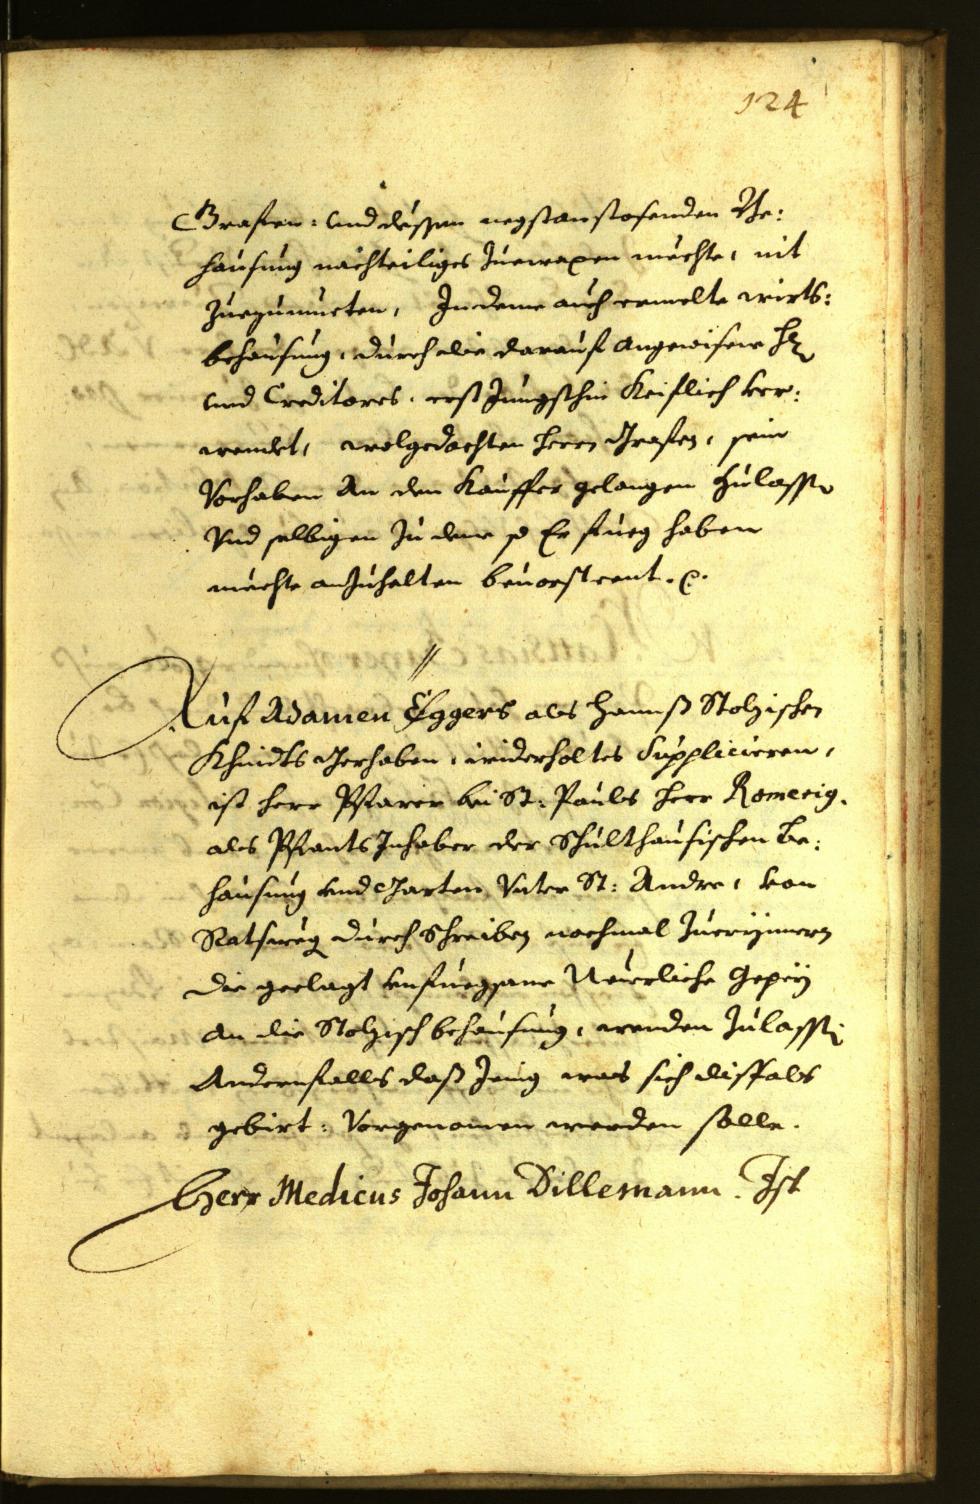 124
Grafen: und dessen negstanstosenden Be:
hausung nachteiliges Zuewaxen mechte, nit
Zuezumueten, Indeme auch ermelte wirts:
behausung, durch die darauf angewisene
und Creditores, erst Jungsthin Keiflich ver:
wendet, wolgedachten Herrn Grafen, sein
Vorhaben An den Kauffer gelangen Zulassen
Vnd selbigen Zu deme so Er fueg haben
mechte anzuhalten beuorsteent. &.
Auf Adamen Eggers als Hannß Stolzischen
Khindts Gerhaben, widerholtes Supplicieren,
ist Herr Pfarer bei St: Pauls Herr Romerig.
als Pfandts Inhaber der Schulthausischen Be:
hausung vnd Garten Vnter St: Andre, von
Ratsweg durch Schreiben nochmal Zuerijnnern
die gelagt vnfuegsame Neuerliche Gepey
an die Stolzisch behausung, wenden Zulassen
Andernfalls daß Jenig was sich dissfals
gebirt: Vorgenomen werden solle.
Herr Medicus Johann Dillemann. Ist